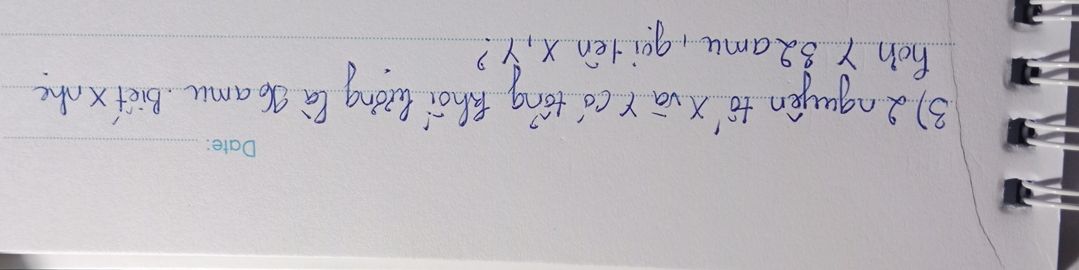 Date:
3) 2 nguyên tố X và Y có tổng khối lượng là 96 amu. Biết X nhẹ
hơn Y 32 amu, gọi tên X, Y?